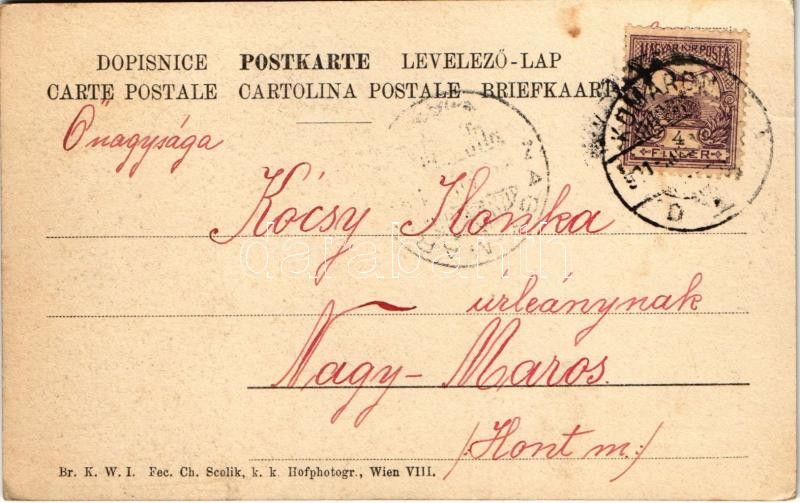 DOPISNICE POSTKARTE LEVELEZŐ-LAP
CARTE POSTALE CARTOLINA POSTALE BRIEFKAART
MAGYAR KIR. POSTA
KOMÁROM
4
FILLÉR
D
NAGY MAROS
Őnagysága
Kócsy Ilonka
darabanth
úrleánynak
Nagy-Maros
/:Hont m:/
Br. K. W. I. Fec. Ch. Scolik, k. k. Hofphotogr., Wien VIII.